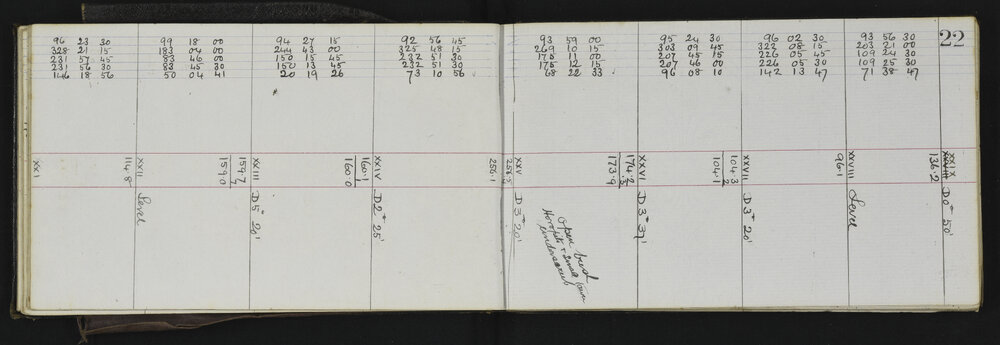 96 23 30
328 21 15
231 57 45
231 56 30
146 18 56
99 18 00
183 04 00
83 46 00
83 45 30
50 04 41
94 27 15
244 43 00
150 15 45
150 13 45
20 19 26
92 56 45
325 48 15
232 51 30
232 51 30
73 10 56
93 59 00
269 10 15
175 11 00
175 12 15
68 22 33
95 24 30
303 09 45
207 45 15
207 46 00
96 08 10
96 02 30
322 08 15
226 05 45
226 05 30
142 13 47
93 56 30
203 21 00
109 24 30
109 25 30
71 38 47
22
XXI
114.8
XXII
Level
159.7
159.0
XXIII
D 5° 20'
160.1
160.0
XXIV
D 2° 25'
256.1
256.5
XXV
D 3° 20'
174.2
173.9
XXVI
D 3° 37'
Open bush
undersCrub
104.3
104.1
XXVII
D 3° 20'
96.1
XXVIII
Level
136.2
XXIX
D 0° 50'